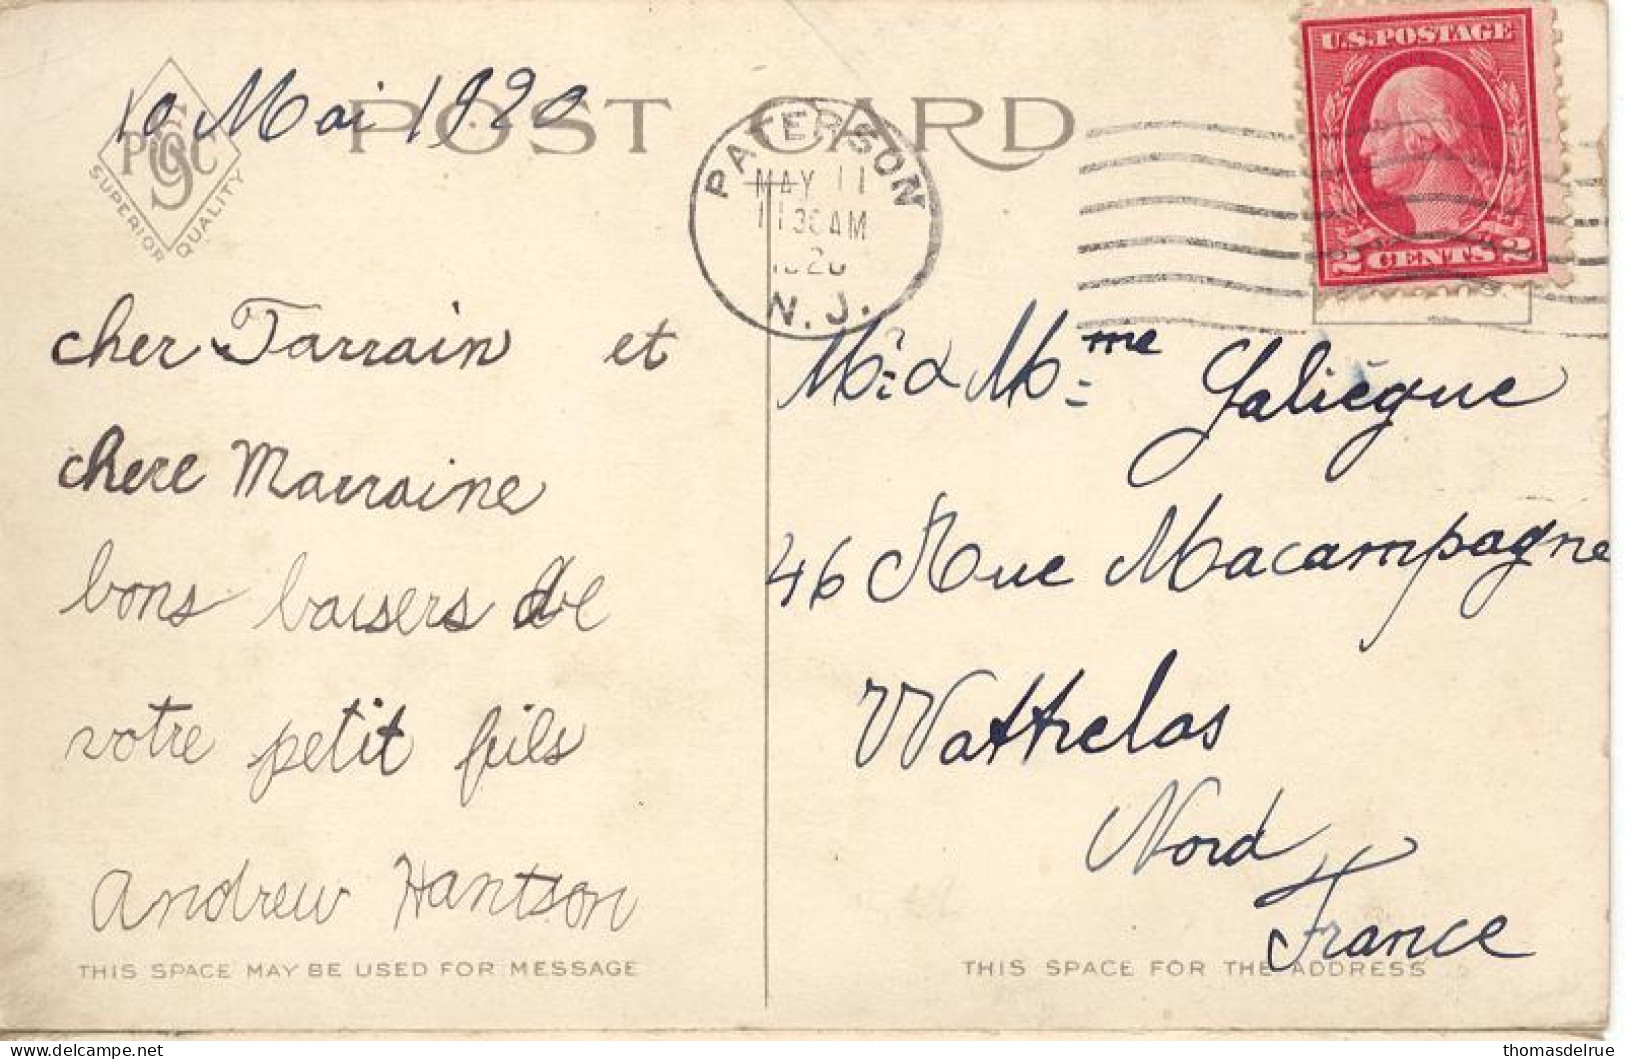 10 Mai 1920
POST CARD
PSC
SUPERIOR QUALITY
PATERSON
MAY 11
1130AM
1920
N.J.
U.S.POSTAGE
2 CENTS 2
cher Parrain et
chere Marraine
bons baisers de
votre petit fuils
Andrew Hantson
THIS SPACE MAY BE USED FOR MESSAGE
Mr & Mme Galiègue
46 Rue Macampagne
Wattrelos
Nord
France
THIS SPACE FOR THE ADDRESS
thomasdelrue